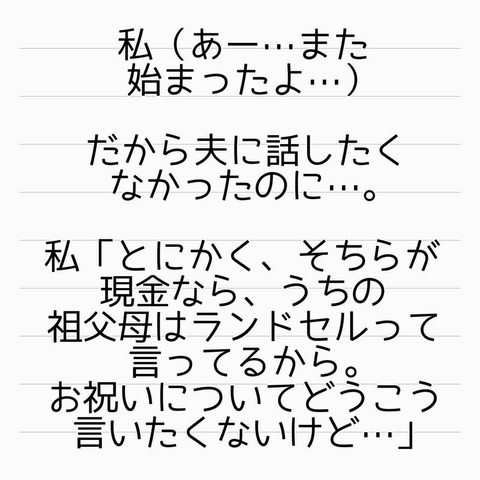 私（あー…また
始まったよ…）
だから夫に話したく
なかったのに…。
私「とにかく、そちらが
現金なら、うちの
祖父母はランドセルって
言ってるから。
お祝いについてどうこう
言いたくないけど…」